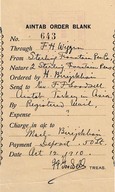 AINTAB ORDER BLANK
No. 643
Through F. H. Wiggin
From Sterling Fountain Pen Co.
Nature Sterling Fountain Pens
Ordered by H. Birejiklian
Send to Rev. F. F. Goodsell
Aintab, Turkey in Asia
By Registered Mail.
Expense
Charge in a/c to
Mark Birejiklian
Payment Deposit
Date Oct. 10, 1910.
TREAS.